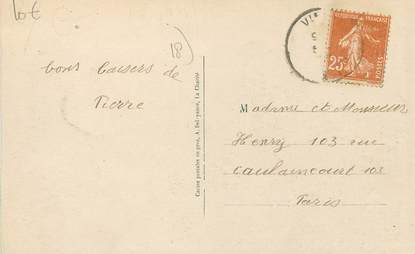 lot
18
bons baisers de
Pierre
Cartes postales en gros, A. Delayance, La Charité
REPUBLIQUE FRANCAISE
25c
POSTES
VI
M
Madame et Monsieur
Henry 103 rue
Caulaincourt 103
Paris